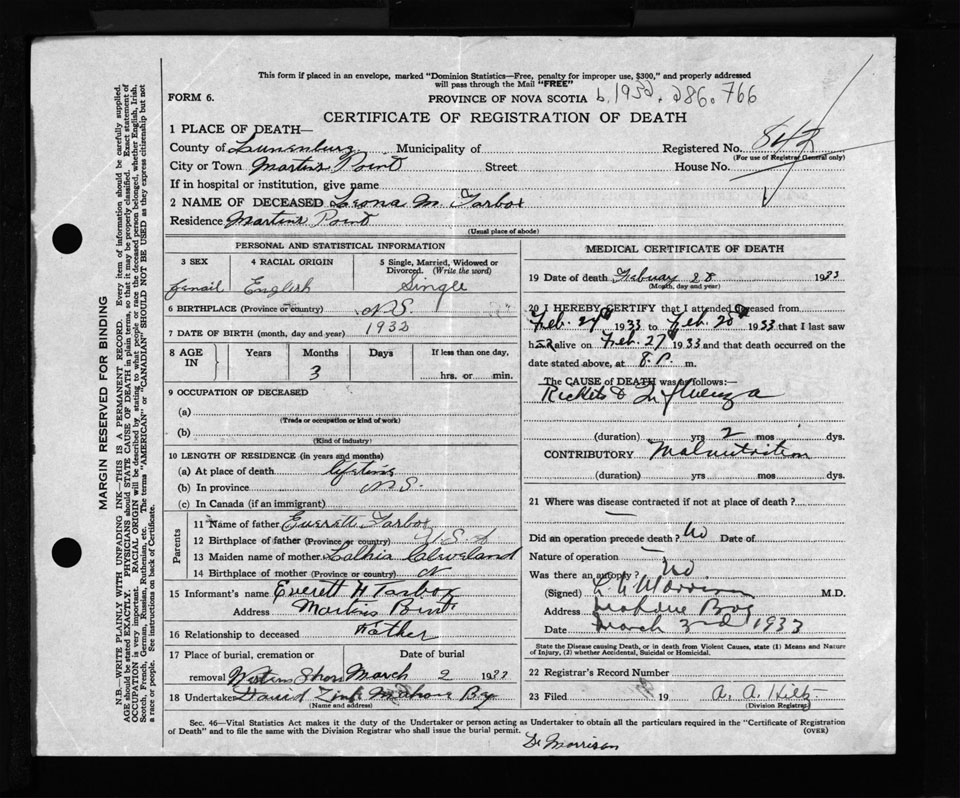 This form if placed in an envelope, marked "Dominion Statistics—Free, penalty for improper use, $300," and properly addressed
will pass through the Mail "FREE"
FORM 6.
PROVINCE OF NOVA SCOTIA b. 1932. 286.766
CERTIFICATE OF REGISTRATION OF DEATH
1 PLACE OF DEATH—
County of Lunenburg Municipality of
Registered No. 842
(For use of Registrar General only)
City or Town Martins Point Street House No.
If in hospital or institution, give name
2 NAME OF DECEASED Leona M. Tarbox
Residence Martins Point
(Usual place of abode)
PERSONAL AND STATISTICAL INFORMATION
3 SEX 4 RACIAL ORIGIN 5 Single, Married, Widowed or
Divorced. (Write the word)
femail English Single
6 BIRTHPLACE (Province or country) N.S.
7 DATE OF BIRTH (month, day and year) 1932
8 AGE IN Years Months Days If less than one day,
3
hrs. or min.
9 OCCUPATION OF DECEASED
(a)
(Trade or occupation or kind of work)
(b)
(Kind of industry)
10 LENGTH OF RESIDENCE (in years and months)
(a) At place of death lifetime
(b) In province N.S.
(c) In Canada (if an immigrant)
Parents
11 Name of father Everett Tarbox
12 Birthplace of father (Province or country) U.S.A
13 Maiden name of mother Cleveland
14 Birthplace of mother (Province or country)
15 Informant's name Everett H Tarbox
Address Martins Point
16 Relationship to deceased Father
17 Place of burial, cremation or Date of burial
removal Western Shore March 2 1933
18 Undertaker David Zink Mahone Bay
(Name and address)
MEDICAL CERTIFICATE OF DEATH
19 Date of death Febuary 28 1933
(Month, day and year)
20 I HEREBY CERTIFY that I attended deceased from
Feb. 27th 1933 to Feb. 28th 1933 that I last saw
her alive on Feb. 27th 1933 and that death occurred on the
date stated above, at 8. P. m.
The CAUSE of DEATH was as follows:—
Rickets & Influenza
(duration) yrs 2 mos dys.
CONTRIBUTORY Malnutrition
(duration) yrs. mos. dys.
21 Where was disease contracted if not at place of death?
Did an operation precede death? No Date of
Nature of operation —
Was there an autopsy? No
(Signed) Morrison M.D.
Address Mahone Bay
Date March 3rd 1933
State the Disease causing Death, or in death from Violent Causes, state (1) Means and Nature
of Injury, (2) whether Accidental, Suicidal or Homicidal.
22 Registrar's Record Number
23 Filed 19 A. A. Hiltz
(Division Registrar)
Sec. 46—Vital Statistics Act makes it the duty of the Undertaker or person acting as Undertaker to obtain all the particulars required in the "Certificate of Registration
of Death" and to file the same with the Division Registrar who shall issue the burial permit.
(OVER)
Dr Morrison
MARGIN RESERVED FOR BINDING
N.B.—WRITE PLAINLY WITH UNFADING INK—THIS IS A PERMANENT RECORD. Every item of information should be carefully supplied.
AGE should be stated EXACTLY. PHYSICIANS should STATE CAUSE OF DEATH in plain terms, so that it may be properly classified. Exact statement of
OCCUPATION is very important. RACIAL ORIGIN will be described by stating to what people or race the deceased person belonged, whether English, Irish,
Scotch, French, German, Russian, Ruthenian, etc. The terms "AMERICAN" or "CANADIAN" SHOULD NOT BE USED as they express citizenship but not
a race or people. See instructions on back of Certificate.